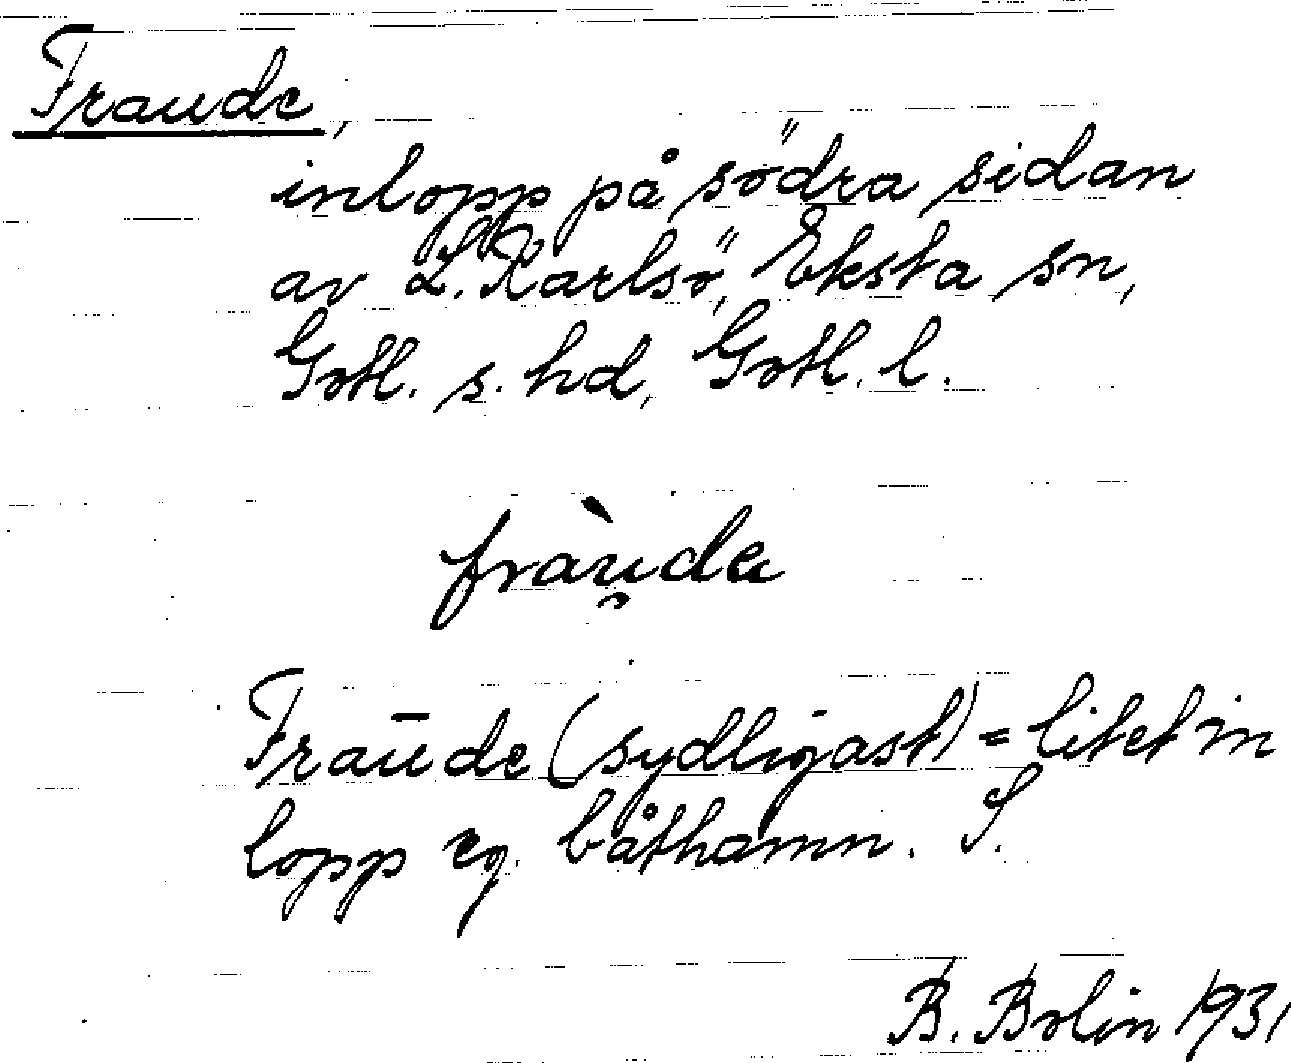 Fraude,
inlopp på södra sidan
av L. Karlsö, Eksta sn,
Gotl. s. hd, Gotl. l.
fràu̯da
Fraūde (sydligast) = litet in
lopp eg. båthamn. S.
B. Bolin 1931